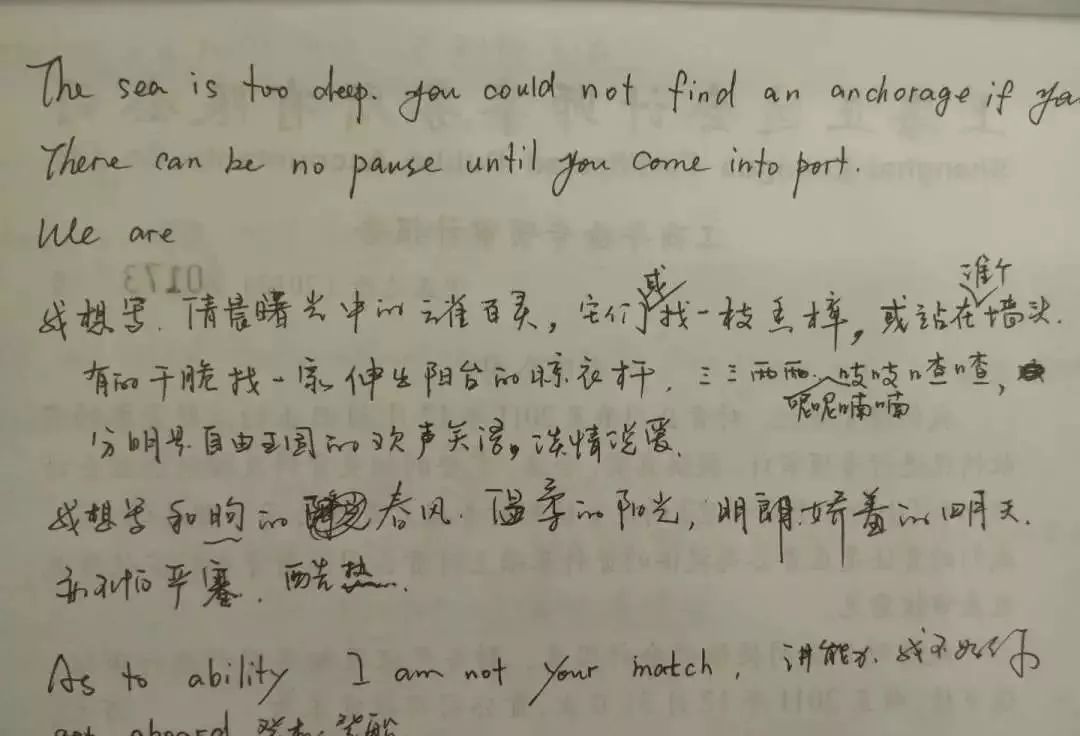 The sea is too deep. you could not find an anchorage if you
There can be no pause until you come into port.
We are
0173
我想写、清晨曙光中的云雀百灵，它们或找一枝香樟，或站在谁个墙头.
有的干脆找一家伸出阳台的晾衣杆、三三两两、呢呢喃喃吱吱喳喳，
分明是自由王国的欢声笑语，谈情说爱.
我想写和煦的春风、温柔的阳光，明朗娇羞的四月天.
亦不怕严寒、酷热.
As to ability I am not your match, 讲能力、我不如你
get aboard 登机、登船